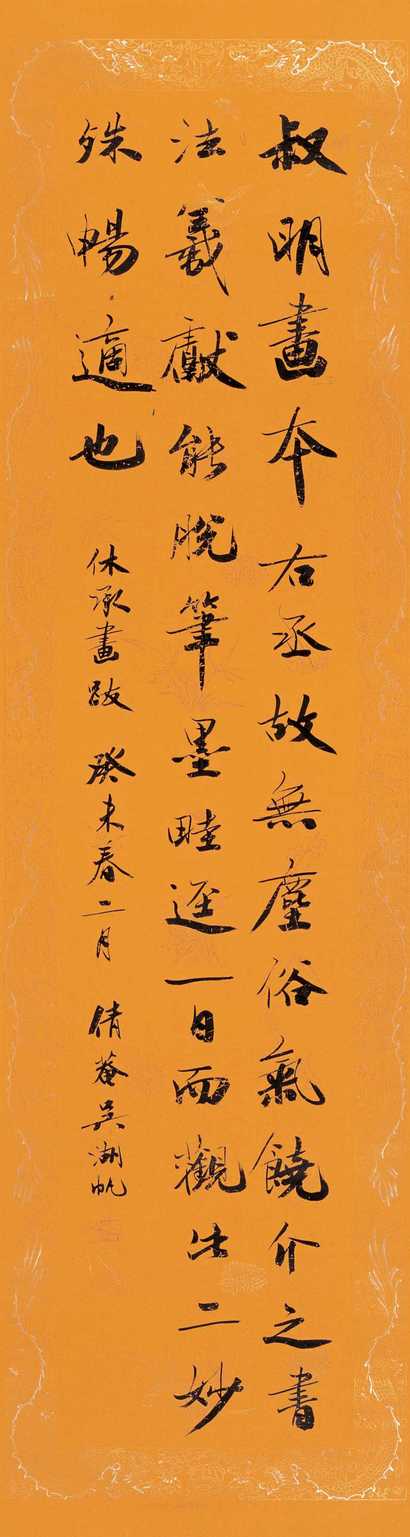 叔明畫本右丞故無塵俗氣饒介之書
法羲獻能脫筆墨畦逕一日而觀此二妙
殊暢適也
休承畫跋 癸未春二月 倩菴吳湖帆